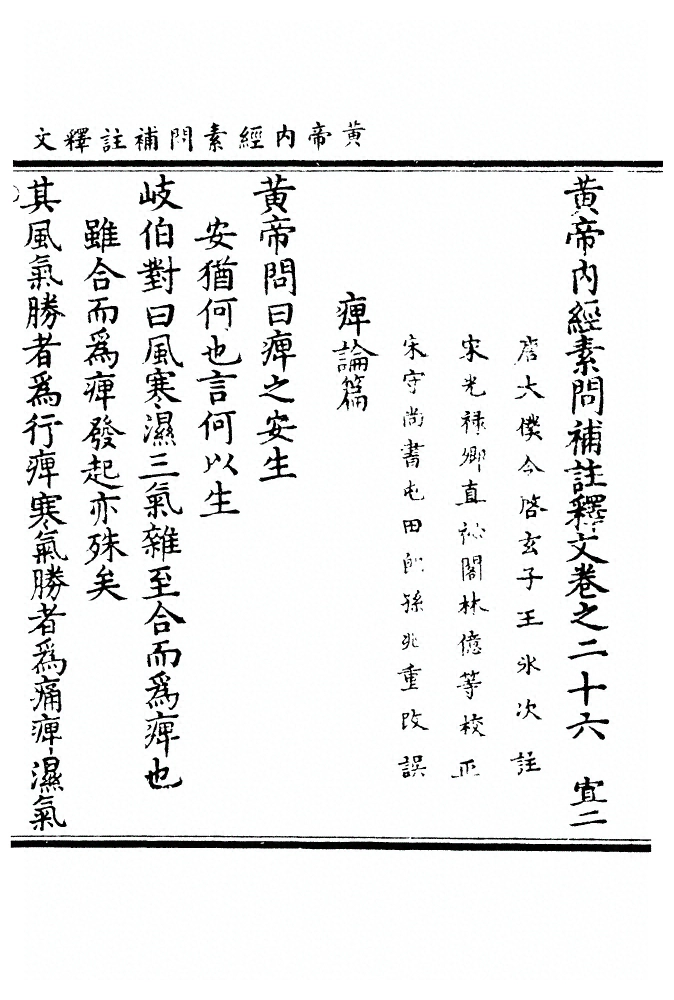 黃帝內經素問補註釋文
黃帝內經素問補註釋文卷之二十六 宜二
唐大僕令啓玄子王氷次註
宋光祿卿直祕閣林億等校正
宋守尚書屯田郎孫兆重改誤
痺論篇
黃帝問曰痺之安生
安猶何也言何以生
岐伯對曰風寒濕三氣雜至合而爲痺也
雖合而爲痺發起亦殊矣
其風氣勝者爲行痺寒氣勝者爲痛痺濕氣